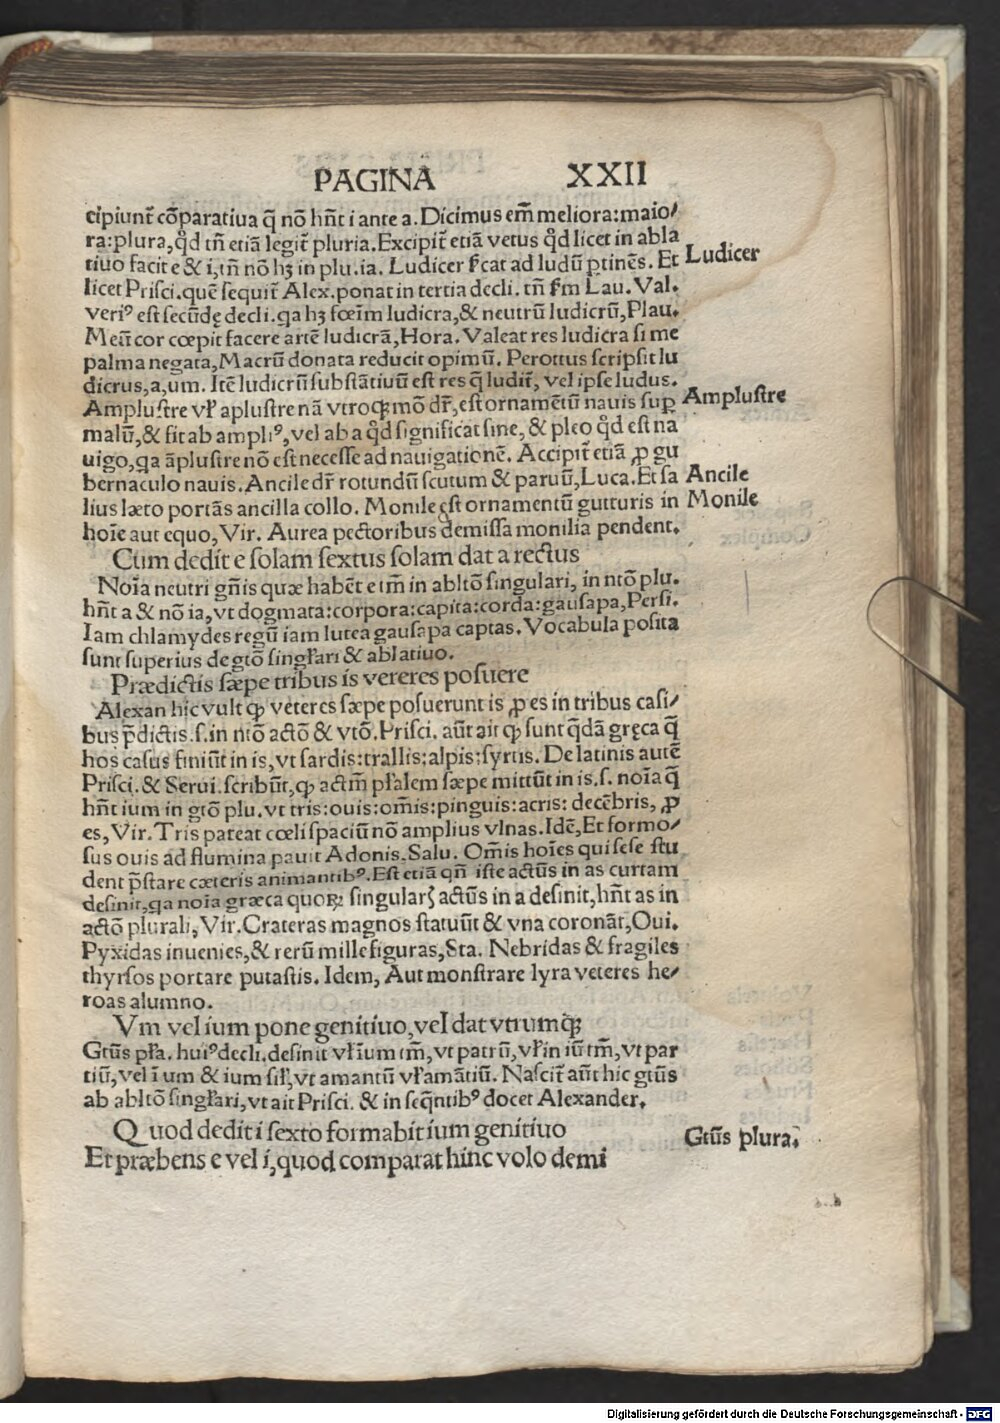 PAGINA XXII
cipiunt̃ cõparatiua q̃ nõ hñt i ante a. Dicimus em̃ meliora:maio/
ra:plura, qd̉ tñ etiã legit̃ pluria. Excipit̃ etiã vetus qd̉ licet in abla
tiuo facit e & i, tñ nõ hꝫ in plu. ia. Ludicer ſ̃cat ad ludũ ꝑtinẽs. Et Ludicer
licet Priſci. quẽ ſequit̃ Alex. ponat in tertia decli. tñ ſm̃ Lau. Val.
veriꝰ eſt ſecũdę decli. qa hꝫ fœim̃ ludicra, & neutrũ ludicrũ, Plau.
Meũ cor cœpit facere artẽ ludicrã, Hora. Valeat res ludicra ſi me
palma negata, Macrũ donata reducit opimũ. Perottus ſcripſit lu
dicrus, a, um. Itẽ ludicrũ ſubſtãtiuũ eſt res q̃ ludit̃, vel ipſe ludus.
Ampluſtre vł apluſtre nã vtroqꝫ mõ dr̃, eſt ornamẽtũ nauis ſuꝑ Ampluſtre
malũ, & fit ab ampliꝰ, vel ab a qd̉ ſignificat ſine, & pleo qd̉ eſt na
uigo, qa ãpluſtre nõ eſt neceſſe ad nauigationẽ. Accipit̃ etiã ꝓ gu
bernaculo nauis. Ancile dr̃ rotundũ ſcutum & paruũ, Luca. Et ſa Ancile
lius læto portãs ancilla collo. Monile eſt ornamentũ gutturis in Monile
hoĩe aut equo, Vir. Aurea pectoribus demiſſa monilia pendent.
Cum dedit e ſolam ſextus ſolam dat a rectus
Noĩa neutri gñis quæ habẽt e im̃ in abltõ ſingulari, in ntõ plu.
hñt a & nõ ia, vt dogmata:corpora:capita:corda:gauſapa, Perſi.
Iam chlamydes regũ iam lutea gauſapa captas. Vocabula poſita
ſunt ſuperius de gtõ ſingłari & ablatiuo.
Prædictis ſæpe tribus is veteres poſuere
Alexan hic vult ꝙ veteres ſæpe poſuerunt is ꝓ es in tribus caſi/
bus p̃dictis. ſ. in ntõ actõ & vtõ. Priſci. aũt ait ꝙ ſunt qd̃ã gręca q̃
hos caſus finiũt in is, vt ſardis:trallis:alpis:ſyrtis. De latinis autẽ
Priſci. & Serui. ſcribũt, ꝙ actm̃ płalem ſæpe mittũt in is. ſ. noĩa q̃
hñt ium in gtõ plu. vt tris:ouis:om̃is:pinguis:acris: decẽbris, ꝓ
es, Vir. Tris pateat cœli ſpaciũ nõ amplius vlnas. Idẽ, Et formo/
ſus ouis ad flumina pauit Adonis. Salu. Om̃is hoĩes qui ſeſe ſtu
dent p̃ſtare cæteris animantibꝰ. Eſt etiã qñ iſte actũs in as curtam
deſinit, qa noĩa græca quoꝝ ſingularꝭ actũs in a deſinit, hñt as in
actõ plurali, Vir. Crateras magnos ſtatuũt & vna coronãt, Oui.
Pyxidas inuenies, & rerũ mille figuras, Sta. Nebridas & fragiles
thyrſos portare putaſtis. Idem, Aut monſtrare lyra veteres he/
roas alumno.
Vm vel ium pone genitiuo, vel dat vtrumqꝫ
Gtũs płа. huiꝰ decli. deſinit vł ĩum tm̃, vt patrũ, vł in iũ tm̃, vt par
tiũ, vel ĩ um & ium ſił, vt amantũ vł amãtiũ. Naſcit̃ aũt hic gtũs
ab abltõ ſingłari, vt ait Priſci. & in ſeq̃ntibꝰ docet Alexander.
Quod dedit i ſexto formabit ium genitiuo Gtũs plura.
Et præbens e vel i, quod comparat hinc volo demi
Digitalisierung gefördert durch die Deutsche Forschungsgemeinschaft - DFG